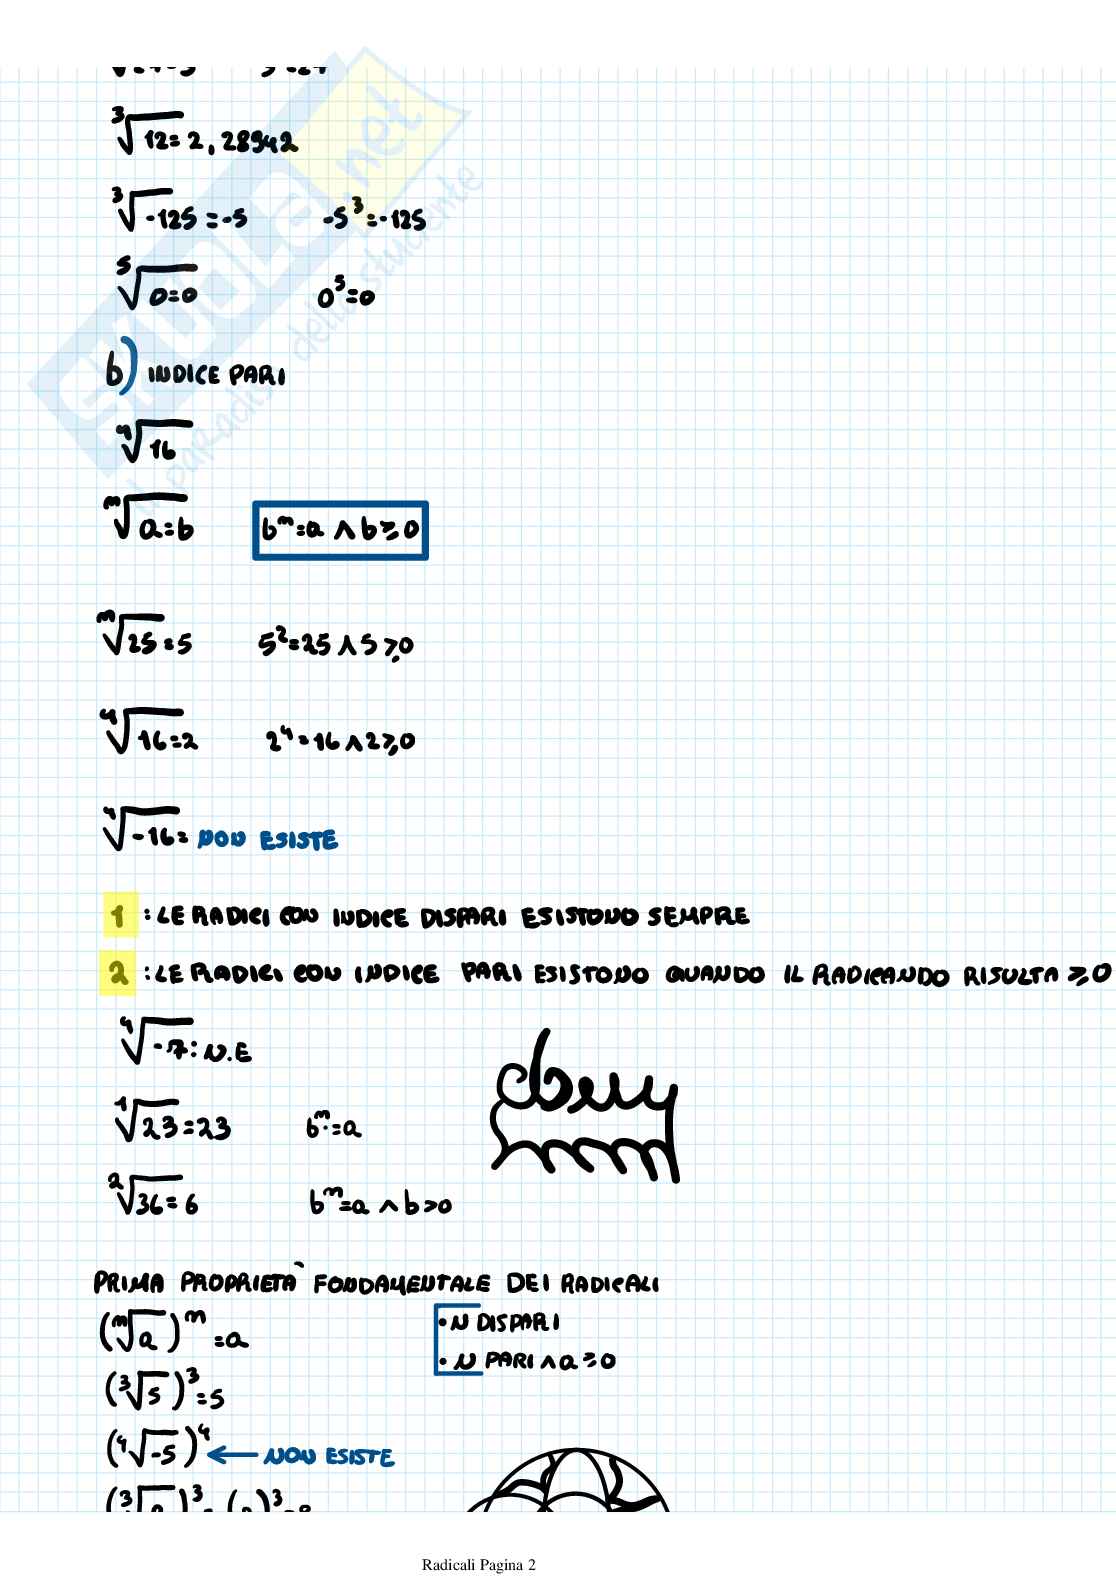 ³√12=2,28942
³√-125=-5 -5³=-125
⁵√0=0 0⁵=0
b) INDICE PARI
⁴√16
ⁿ√a=b bⁿ=a ∧ b≥0
ⁿ√25=5 5²=25 ∧ 5≥0
⁴√16=2 2⁴=16 ∧ 2≥0
⁴√-16= NON ESISTE
1 : LE RADICI CON INDICE DISPARI ESISTONO SEMPRE
2 : LE RADICI CON INDICE PARI ESISTONO QUANDO IL RADICANDO RISULTA ≥0
⁴√-7: N.E
¹√23=23 bⁿ=a
²√36=6 bⁿ=a ∧ b>0
PRIMA PROPRIETÀ FONDAMENTALE DEI RADICALI
(ⁿ√a)ⁿ=a • N DISPARI
• N PARI ∧ a≥0
(³√5)³=5
(⁴√-5)⁴ ← NON ESISTE
Radicali Pagina 2
SKUOLA.net
il paradiso dello studente